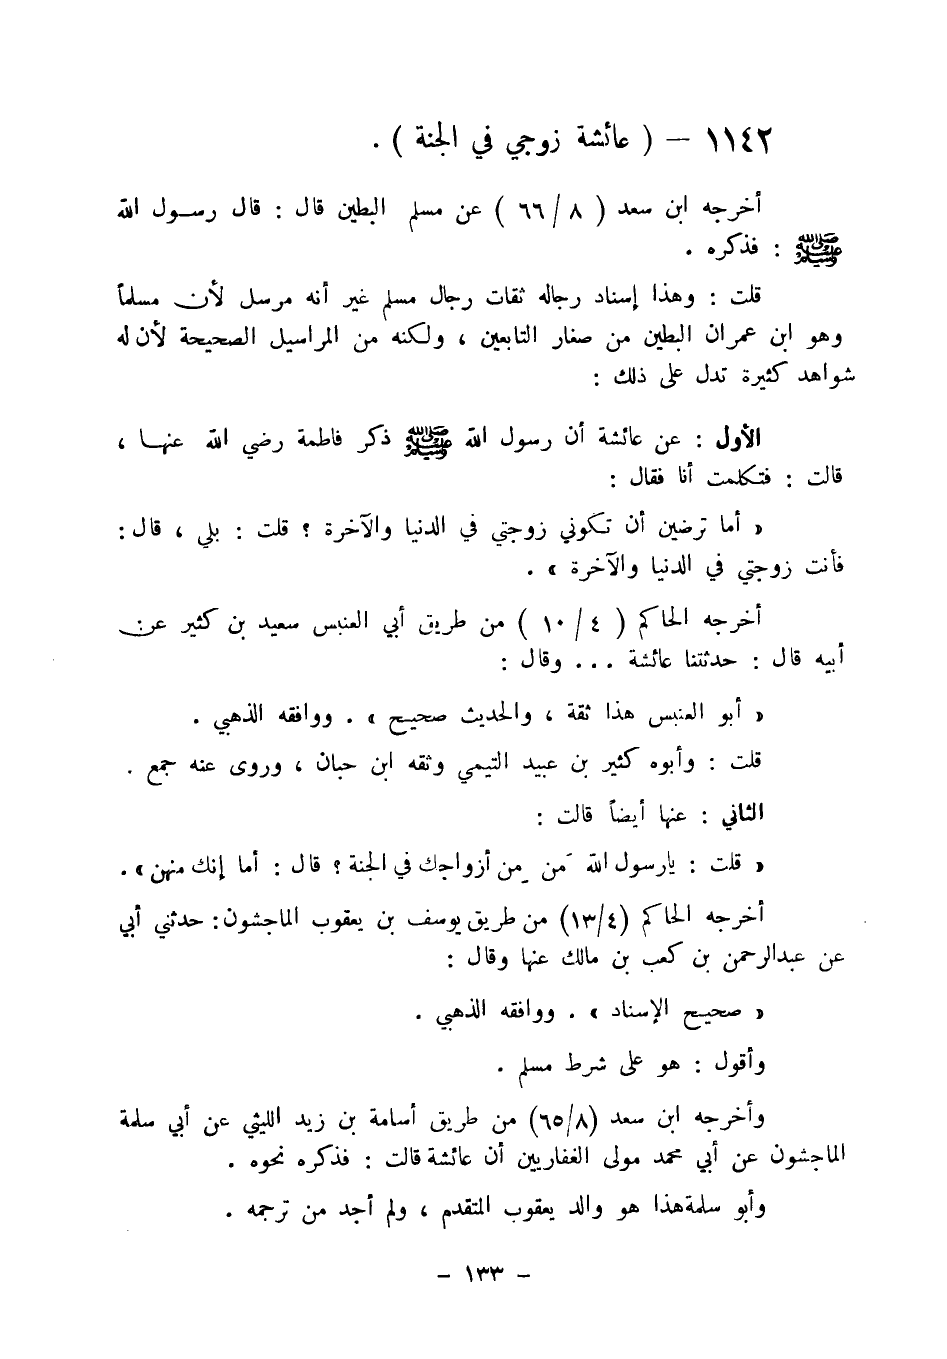 ١١٤٢ – ( عائشة زوجي في الجنة ) .
أخرجه ابن سعد ( ٨ / ٦٦ ) عن مسلم البطين قال : قال رسول الله
ﷺ : فذكره .
قلت : وهذا إسناد رجاله ثقات رجال مسلم غير أنه مرسل لأن مسلماً
وهو ابن عمران البطين من صغار التابعين ، ولكنه من المراسيل الصحيحة لأن له
شواهد كثيرة تدل على ذلك :
الأول : عن عائشة أن رسول الله ﷺ ذكر فاطمة رضي الله عنها ،
قالت : فتكلمت أنا فقال :
« أما ترضين أن تكوني زوجتي في الدنيا والآخرة ؟ قلت : بلى ، قال :
فأنت زوجتي في الدنيا والآخرة » .
أخرجه الحاكم ( ٤ / ١٠ ) من طريق أبي العنبس سعيد بن كثير عن
أبيه قال : حدثتنا عائشة ... وقال :
« أبو العنبس هذا ثقة ، والحديث صحيح » . ووافقه الذهبي .
قلت : وأبوه كثير بن عبيد التيمي وثقه ابن حبان ، وروى عنه جمع .
الثاني : عنها أيضاً قالت :
« قلت : يارسول الله مَن مِن أزواجك في الجنة ؟ قال : أما إنك منهن » .
أخرجه الحاكم (٤/١٣) من طريق يوسف بن يعقوب الماجشون: حدثني أبي
عن عبدالرحمن بن كعب بن مالك عنها وقال :
« صحيح الإسناد » . ووافقه الذهبي .
وأقول : هو على شرط مسلم .
وأخرجه ابن سعد (٨/٦٥) من طريق أسامة بن زيد الليثي عن أبي سلمة
الماجشون عن أبي محمد مولى الغفاريين أن عائشة قالت : فذكره نحوه .
وأبو سلمة هذا هو والد يعقوب المتقدم ، ولم أجد من ترجمه .
– ١٣٣ –